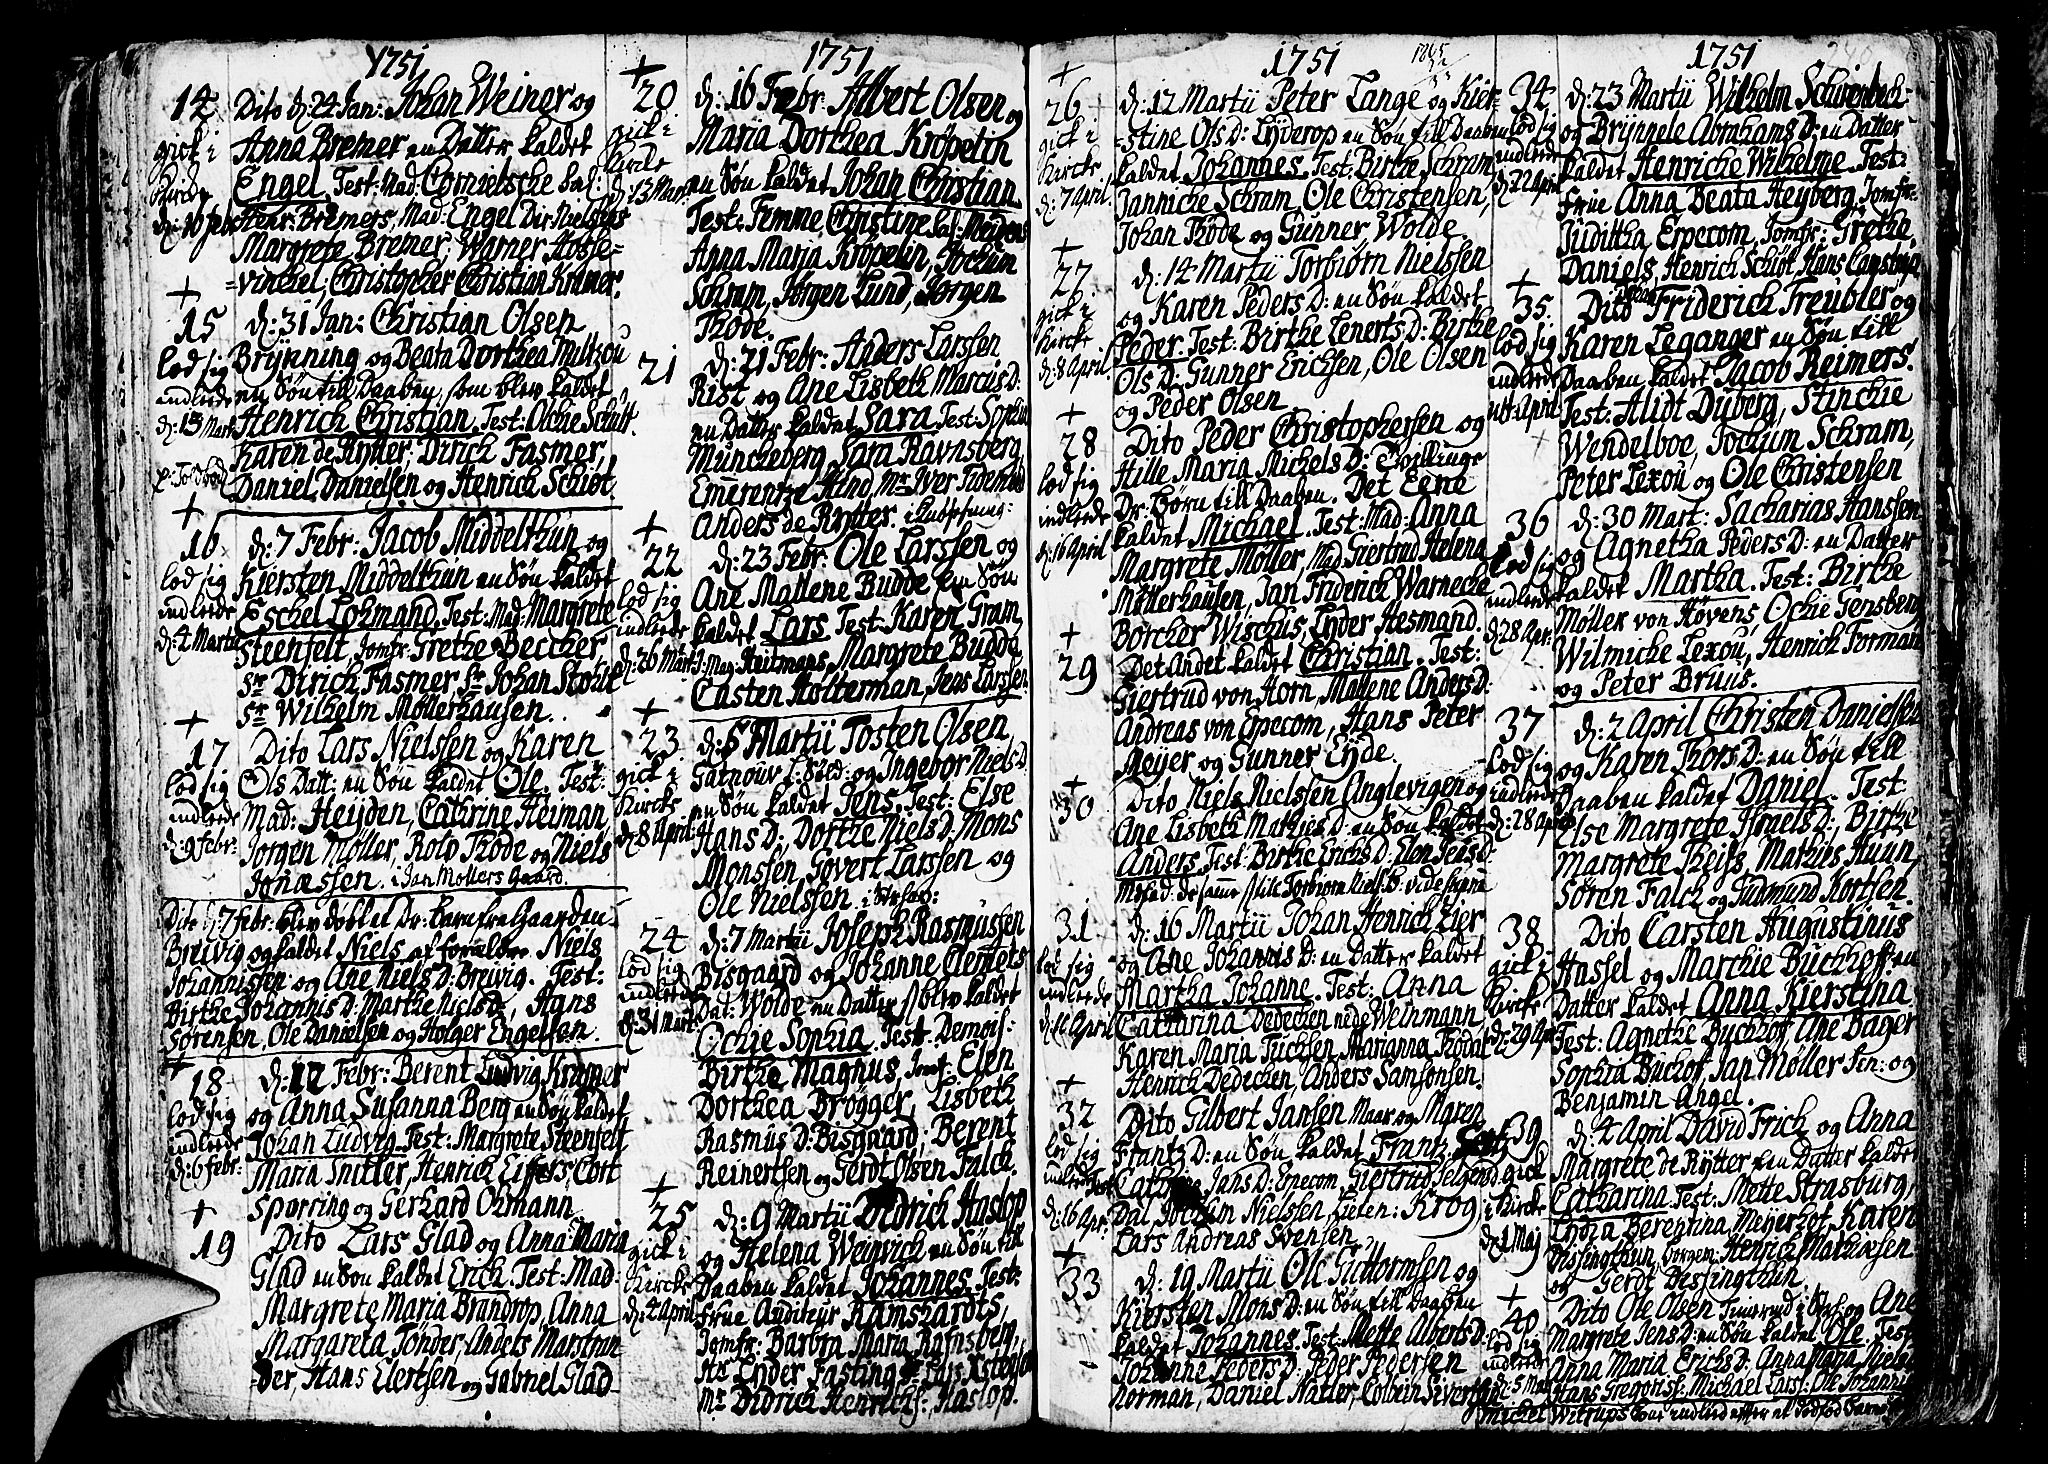 1751
14
gick i
Kircke
d: 10 feb:
Dito d: 24 Jan: Johan Weiner og
Anna Bremer en Datter kaldet
Engel. Test: Mad: Cornielsche Sal:
Bremers, Mad: Engel Dir: Nielsens
Margrete Bremer, Warner Hosse=
=vinckel, Christopher Christian Kremer.
+
15
lod sig
indleede
d: 13 Mart
d: 31 Jan: Christian Olsen
Brÿnning og Beata Dorthea Miltzou
en Søn till Daaben, som blev kaldet
Henrich Christian. Test: Ochie Schutt
Karen de Rÿtter, Dirich Fasmer,
Daniel Danielsen og Henrich Schiøt.
+
16
lod sig
indleede
d: 4 Martii
d: 7 Febr: Jacob Middelthun og
Kiersten Middelthun en Søn kaldet
Eschel Lohmand. Test: Mad: Margrete
Steenfelt, Jomfr: Grethe Beccker
Sr Dirich Fasmer Sr Johan Stohle
Sr Wilhelm Møllerhausen.
+
17
lod sig
indleede
d: 9 febr:
Dito Lars Nielssen og Karen
Ols Datt: en Søn kaldet Ole. Test:
Mad: Heijden, Cathrine Heiman,
Jørgen Møller, Rolv Thode og Niels
Jonæssen. i Jan Møllers Gaard.
Dito d: 7 febr: blev døbt et Dr: barn fra Gaarden
Breivig og kaldet Niels af forældre Niels
Johannissen og Ane Niels D: Breivig. Test:
Birthe Johannis D: Marthe Niels D: Hans
Sørensen, Ole Danielsen og Holger Engelsen.
+
18
lod sig
indleede
d: 6 febr:
d: 12 Febr: Berent Ludvig Kramer
og Anna Susanna Berg en Søn kaldet
Johan Ludvig. Test: Margrete Steenfelt
Maria Snitler, Henrich Eiffers, Cort
Sporring og Gerhard Ohmann
+
19
Dito Lars Glad og Anna Maria
Glad en Søn kaldet Erich. Test: Mad
Margrete Maria Brandrop, Anna
Margareta Tønder, Anders Marstran=
=der, Hans Elertsen og Gabriel Glad
1751
+
20
gick i
Kirke
d: 13 Mart
d: 16 Febr: Albert Olsen og
Maria Dorthea Krøpelin
en Søn kaldet Johan Christian
Test: Femme, Christine Sal: Meidens
Anna Maria Krøpelin, Jochum
Schram, Jørgen Lund, Jørgen
Thode.
21
d: 21 Febr: Anders Larssen
Rist og Ane Lisbeth Marcus D:
en Datter kaldet Sara. Test: Sophia
Münckeberg, Sara Ravnsberg,
Emerentze Hind, Mr Iver
Anders de Rÿtter.
+
22
lod sig
indleede
d: 26 Mart:
d: 23 Febr: Ole Larssen og
Ane Mallene Budde en Søn
kaldet Lars. Test: Karen Gram,
Mad: Heitmans Margrete Budde,
Casten Holterman, Jens Larssen.
+
23
gick i
Kircke
d: 8 April:
d: 5 Martii Tosten Olsen
og Ingebor Niels D:
en Søn kaldet Jens. Test: Else
Hans D: Dorthe Niels D: Mons
Monsen, Govert Larssen og
Ole Nielssen.
24
lod sig
indleede
d: 31 Mart:
d: 7 Martii Joseph Rasmussen
Bisgaard og Johanne Clemets
Dat: Wolde en Datter blev kaldet
Ochie Sophia. Test: Demois:
Birthe Magnus, Jomf: Elen
Dorthea Brøgger, Lisbeth
Rasmus D: Bisgaard, Berent
Reinertsen og Gerdt Olsen Falch.
+
25
gick i
Kircke
d: 4 April
d: 9 Martii Didrich Haslop
og Helena Weinrich en Søn till
Daaben kaldet Johannes. Test:
Frue Auditeur Ramshardts,
Jomfr: Barbra Maria Rafnsberg,
Hr Lÿder Fasting
Mr Didrich Henrichs: Haslop.
1751
+
26
gick i
Kircke
d: 7 April
d: 12 Martii Peter Lange og Kier=
=stine Ols D: Lÿderop en Søn till Daaben
kaldet Johannes. Test: Birthe Schram,
Jannicke Schram, Ole Christensen,
Johan Thode og Gunner Wolde
+
27
gick i
Kircke
d: 8 April.
d: 14 Martii Torbiørn Nielssen
og Karen Peders D: en Søn kaldet
Peder. Test: Birthe Lenerts D: Birthe
Ols D: Gunner Erichsen, Ole Olsen
og Peder Olsen
+
28
lod sig
indleede
d: 16 April
Dito Peder Christophersen og
Hille Maria Michels D: Tvillinge
Dr: børn till Daaben. Det Eene
kaldet Michael. Test: Mad: Anna
Margrete Møller, Mad: Giertrud Helena
Møllerhausen, Jan Friderich Warnecke
Borcher Wischus, Lÿder Hesmand.
+
29
Det Andet kaldet Christian. Test:
Giertrud von Horn, Mallene Anders D:
Andreas von Epecom, Hans Peter
Meijer og Gunner Eÿde.
+
30
Dito Niels Nielssen Anglevigen og
Ane Lisbeth Mathies D: en Søn kaldet
Anders. Test: Birthe Erichs D: Elen Jens D:
31
lod sig
indleede
d: 11 April
d: 16 Martii Johan Henrich Eier
og Ane Johannis D: en Datter kaldet
Martha Johanne. Test: Anna
Catharina Dedecken nede Weinmann,
Karen Maria Tuchsen, Marianna Thodal
Henrich Dedecken, Anders Samsonsen.
+
32
lod sig
indleede
d: 16 Apr:
Dito Gilbert Jansen Maar og Maren
Frantz D: en Søn kaldet Frantz.
Jans D: Epecom, Giertrud
Dal, Nielssen, Krog
Lars Andreas Svensen.
+
33
d: 19 Martii Ole Guttormsen og
Kiersten Mons D: en Søn till Daaben
kaldet Johannes. Test: Mette Alberts D:
Johanne Peders D: Peder Pedersen
Norman, Daniel Hatler,
1751
34
lod sig
indleede
d: 22 April
d: 23 Martii Wilhelm
og Brÿnnele Abrahams D: en Datter
kaldet Henricke Wilhelme. Test:
Frue Anna Beata Heijberg, Jomfr:
Juditha Erpecom, Jomfr: Grethe
Daniels, Henrich Schiøt, Hans
+
35
lod sig
indleede
Dito Friderich Treubler og
Karen Leganger en Søn till
Daaben kaldet Jacob Reimers.
Test: Alidt Dÿberg, Stinckie
Wendelboe, Jochum Schram,
Peter Lexou og Ole Christensen
36
lod sig
indleede
d: 28 Apr:
d: 30 Mart: Sacharias Hanssen
og Agnetha Peders D: en Datter
kaldet Martha. Test: Birthe
Møller von Hovens, Ochie Jensberg,
Wilmicke Lexou, Henrich Forman
og Peter Bruus.
37
lod sig
indleede
d: 28 Apr:
d: 2 April Christen Danielsen
og Karen Thors D: en Søn till
Daaben kaldet Daniel. Test:
Else Margrete Israels D:, Birthe
Margrete Theiss, Mathis Huun,
Søren Falck og Gudmund Kortsen.
38
gick i
Kircke
d: 29 Apr:
Dito Carsten Augustinus
Hassel og Marchie Buchhoff en
Datter kaldet Anna Kierstina
Test: Agnethe Buchhof, Ane Bager
Sophia Buchof, Jan Møller Sen: og
Benjamin Angel.
39
gick
i Kircke
d: 1 Maj
d: 4 April David Frich og Anna
Margrete de Rÿtter en Datter kaldet
Catharina. Test: Mette Strasburg,
Lÿdia Berentina Meÿerhof, Karen
Dessingthun, Henrich Mathiesen
og Gerdt Dessingthun
+
40
lod sig
indleede
d: 5 Maj
Dito Ole Olsen og Ane
Margrete Jens D: en Søn kaldet Ole. Test
Anna Maria Erichs D: Anna Maria Niels
Hans Gregoriss: Michael Larss: Ole Johannis